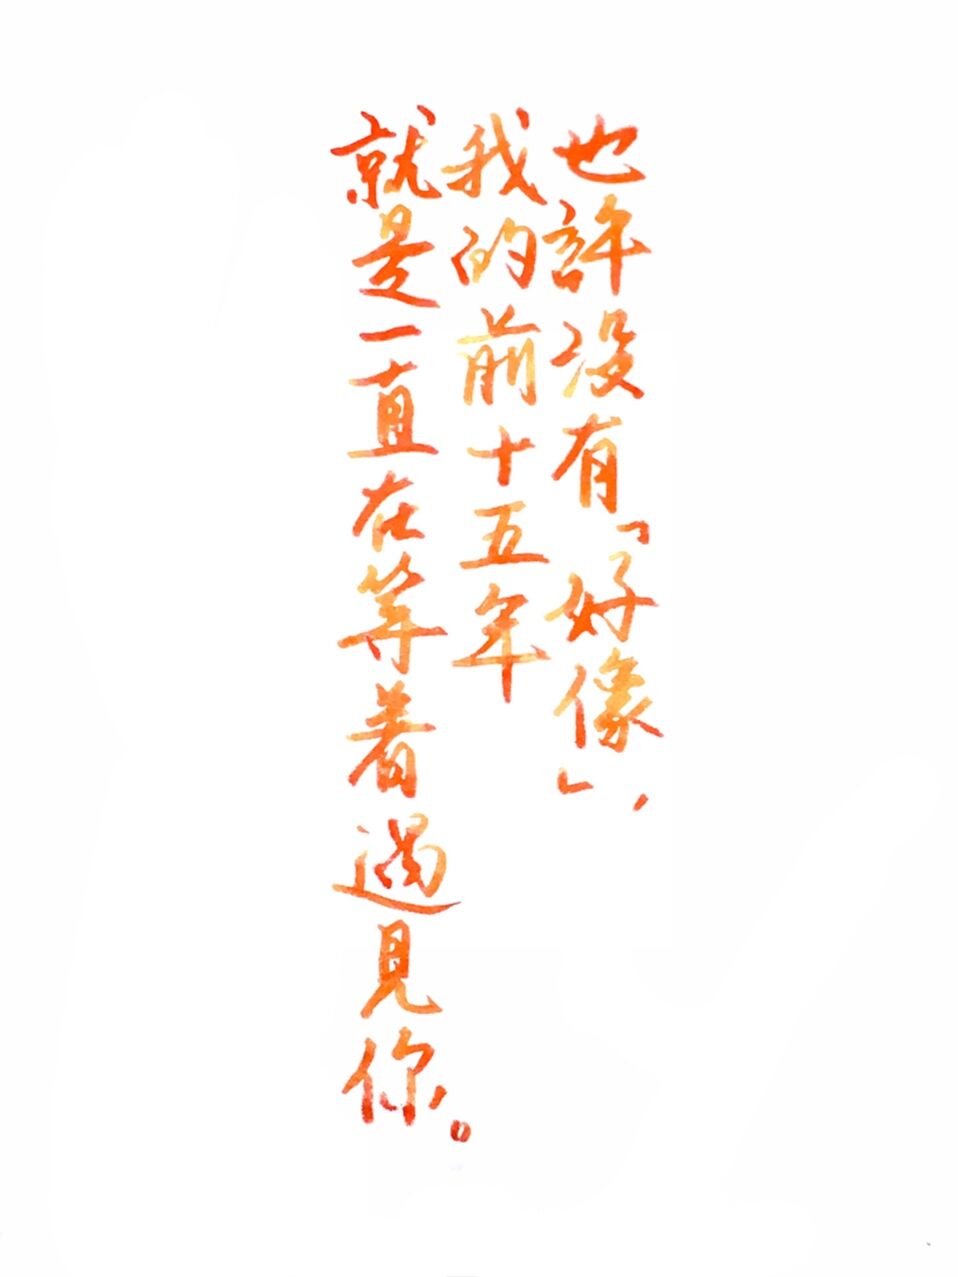 也許沒有「好像」，
我的前十五年
就是一直在等着遇見你。